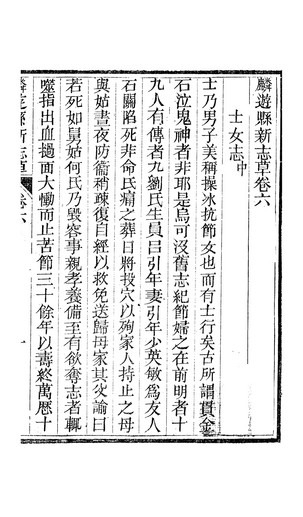 麟遊縣新志草卷六
士女志中
士乃男子美稱操冰抗節女也而有士行矣古所謂貫金
石泣鬼神者非耶是烏可沒舊志紀節婦之在前明者十
九人有傳者九劉氏生員呂引年妻引年少英敏為友人
石關陷死非命氏痛之葬日將投穴以殉家人持止之母
與姑晝夜防衞稍疎復自經以救免送歸母家其父諭曰
若死如舅姑何氏乃毀容事親孝養備至有欲奪志者輒
噬指出血撾面大慟而止苦節三十餘年以壽終萬厯十
麟遊縣新志草
卷六
一